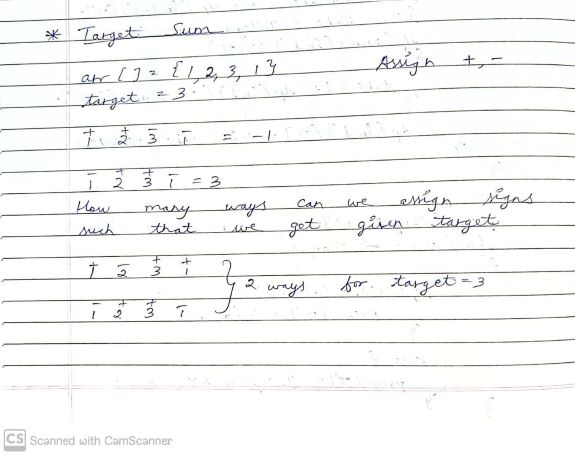 * Target Sum
arr [ ] = { 1, 2, 3, 1 } Assign +, -
target = 3
+1 +2 -3 -1 = -1
-1 +2 +3 -1 = 3
How many ways can we assign signs
such that we get given target
+1 -2 +3 +1
} 2 ways for target = 3
-1 +2 +3 -1
CS Scanned with CamScanner